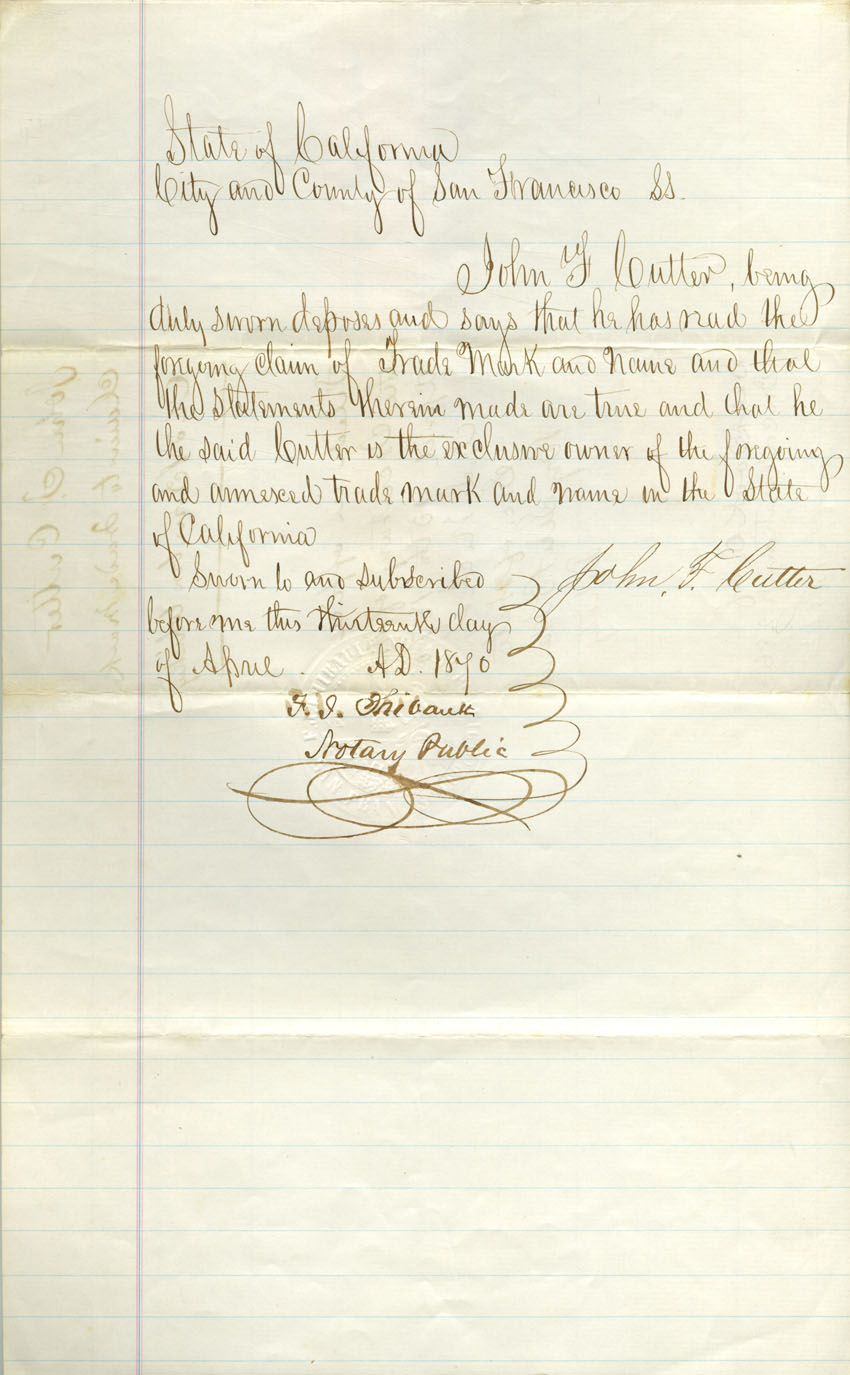 State of California
City and County of San Francisco SS.
John F Cutter, being
duly sworn deposes and says that he has read the
foregoing claim of Trade Mark and name and that
the statements therein made are true and that he
the said Cutter is the exclusive owner of the foregoing
and annexed trade mark and name in the State
of California
Sworn to and subscribed
John, F. Cutter
before me this thirteenth day
of April . AD. 1870
F. J. Thibault
Notary Public